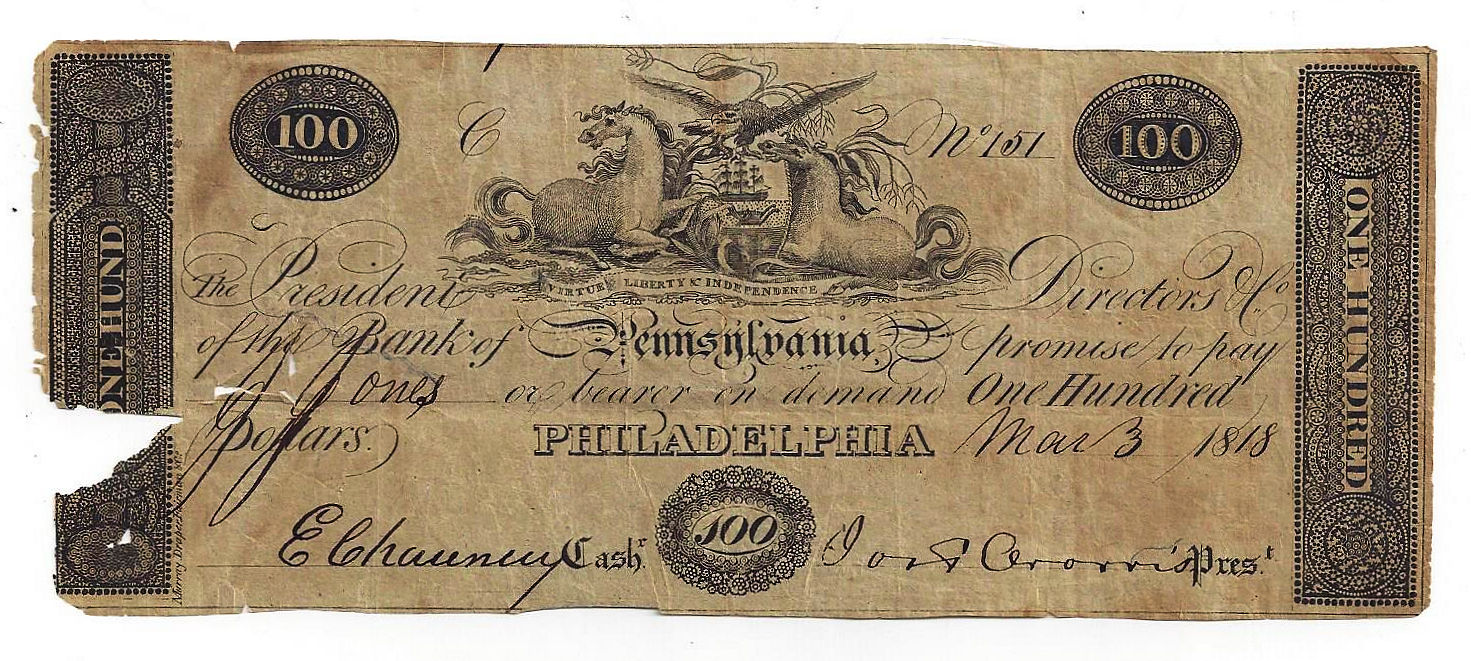 100 C No 151 100
VIRTUE LIBERTY & INDEPENDENCE
The President Directors & Co
of the Bank of Pennsylvania, promise to pay
J Jones or bearer on demand One Hundred
Dollars. PHILADELPHIA Mar 3 1818
E Chauncey Cashr. 100 Prest.
ONE HUND
ONE HUNDRED
Murray Draper Fairman & Co